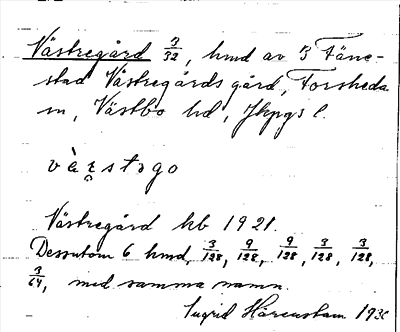 Västregård 3/32, hmd av 3 Täne-
stad Västregårds gård, Forsheda
sn, Västbo hd, Jkpgs l.
Västregård kb 1921.
Dessutom 6 hmd, 3/128, 9/128, 9/128, 3/128, 3/128,
3/64, med samma namn.
Ingrid Härenstam 193